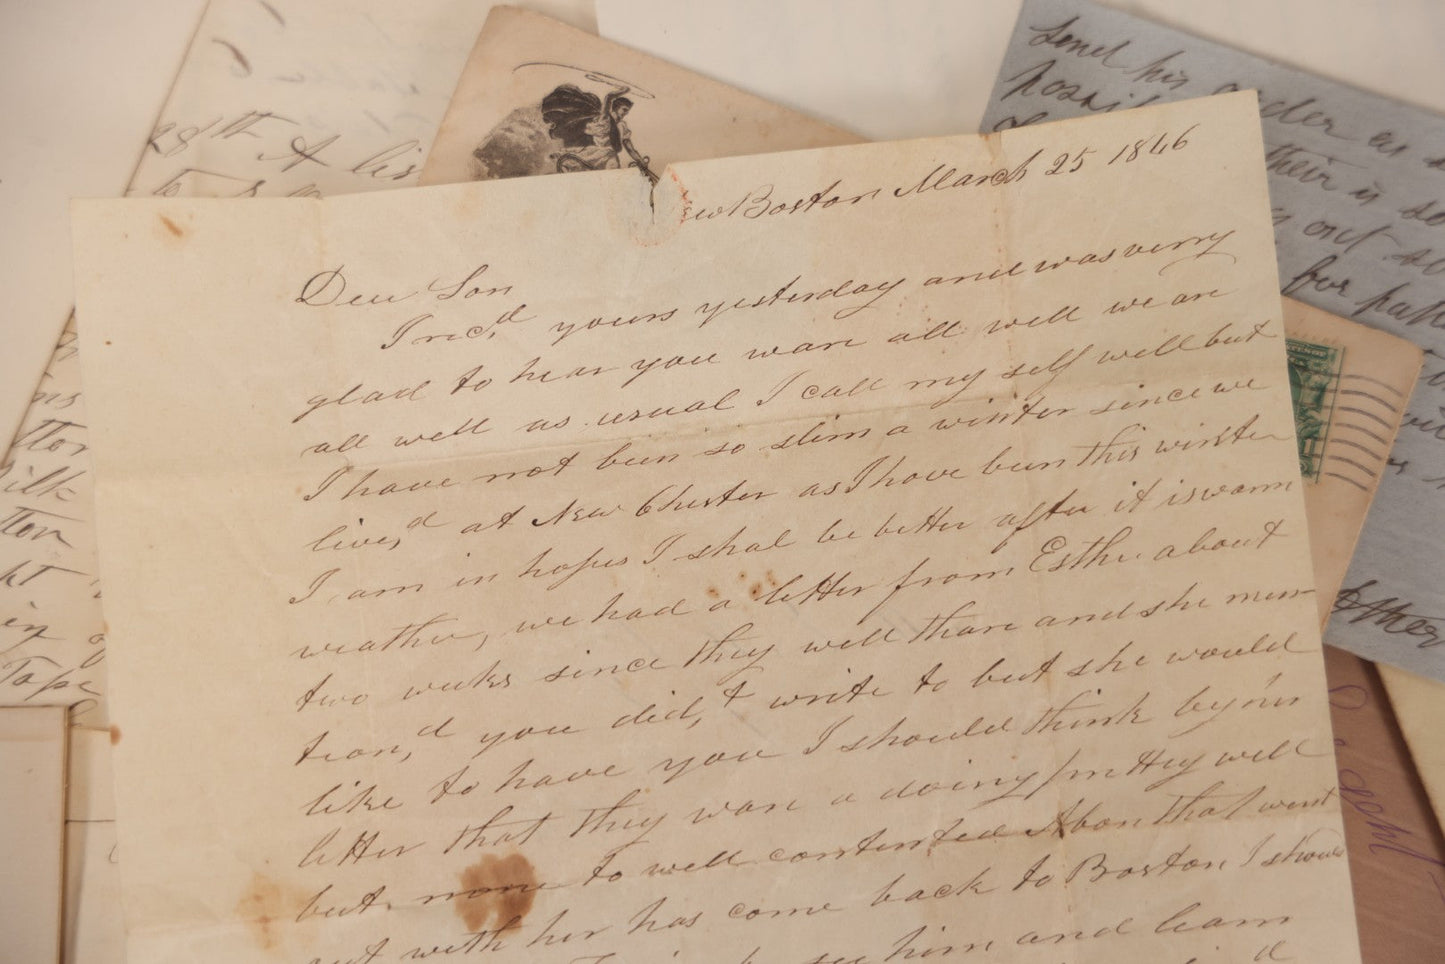 ew Boston March 25 1846
Dear Son
I rec,d yours yesterday and was verry
glad to hear you ware all well we are
all well as usual I call my self well but
I have not been so slim a winter since we
live,d at New Chester as I have been this winter
I am in hopes I shal be better after it is warm
weather, we had a letter from Esther about
two weeks since they well thare and she men-
tion,d you did,t write to but she would
like to have you I should think by her
letter that they ware a doing pretty well
but none to well contented Abon that went
out with her has come back to Boston I should
him and learn
28th A lis
Send his order as s
possib
their is so
out
for pa
Tape